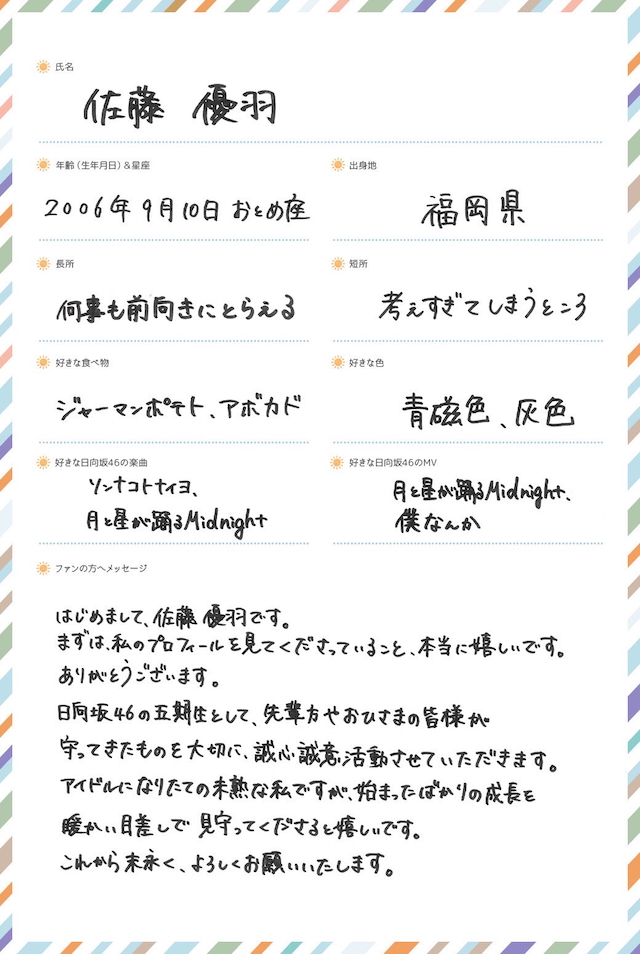 氏名
佐藤 優羽
年齢（生年月日）＆星座
2006年9月10日 おとめ座
出身地
福岡県
長所
何事も前向きにとらえる
短所
考えすぎてしまうところ
好きな食べ物
ジャーマンポテト、アボカド
好きな色
青磁色、灰色
好きな日向坂46の楽曲
ソンナコトナイヨ、
月と星が踊るMidnight
好きな日向坂46のMV
月と星が踊るMidnight、
僕なんか
ファンの方へメッセージ
はじめまして、佐藤 優羽です。
まずは、私のプロフィールを見てくださっていること、本当に嬉しいです。
ありがとうございます。
日向坂46の五期生として、先輩方やおひさまの皆様が
守ってきたものを大切に、誠心誠意活動させていただきます。
アイドルになりたての未熟な私ですが、始まったばかりの成長を
暖かい目差しで見守ってくださると嬉しいです。
これから末永く、よろしくお願いいたします。